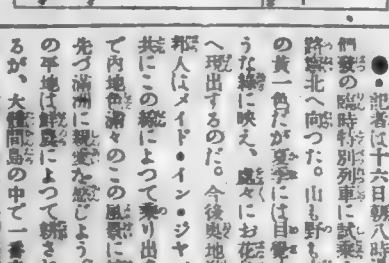 ●・記者は十六日朝八時
們發の臨時特別列車に試乘
路寧北へ向つた。山も野も
の黄一色だが夏季には目
うな綠に映え、處々にお花
へ現出するのだ。今後奥地
邦人はメイド・イン・ジヤ
共にこの線によつて乘り出
で内地色滿々のこの風景に
先づ滿洲に親愛を感じよう
の平地は鮮農によつて耕さ
るが、大體間島の中で一番